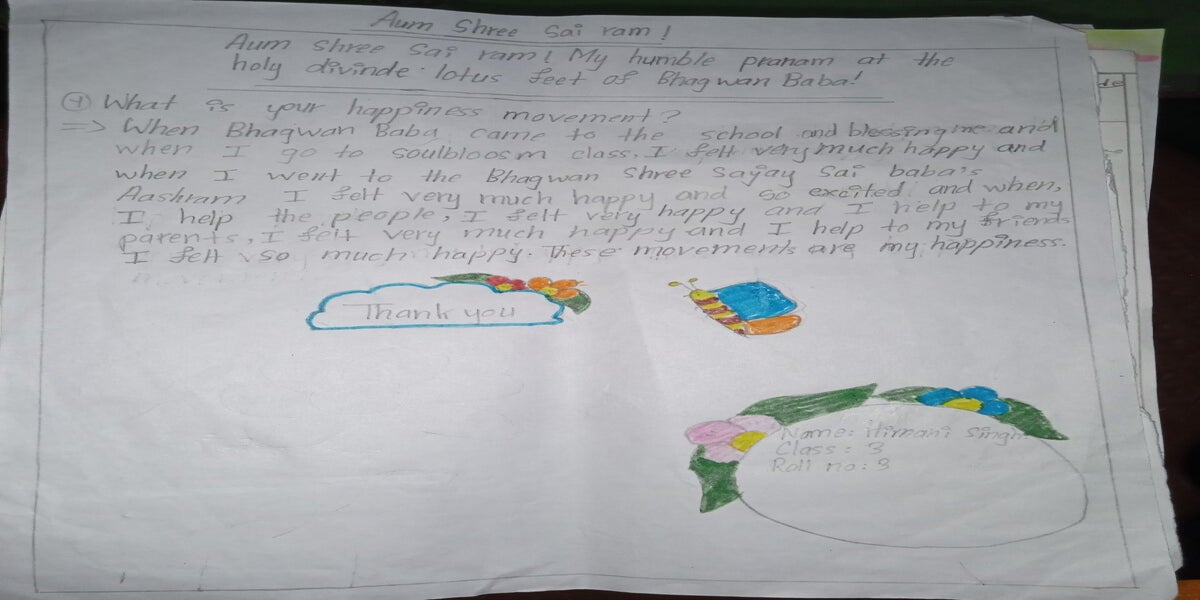 Aum Shree Sai ram!
Aum Shree Sai ram! My humble pranam at the
holy divinde lotus feet of Bhagwan Baba!
What is your happiness movement?
=> When Bhagwan Baba came to the school and blessing me and
when I go to soulbloosm class, I felt very much happy and
when I went to the Bhagwan Shree Sayjay Sai baba's
Aashram I felt very much happy and so excited and when,
I help the people, I felt very happy and I help to my
parents, I felt very much happy and I help to my friends
I felt so much happy. These movements are my happiness.
Thank you
Name: Himani Singh
Class: 3
Roll no: 9